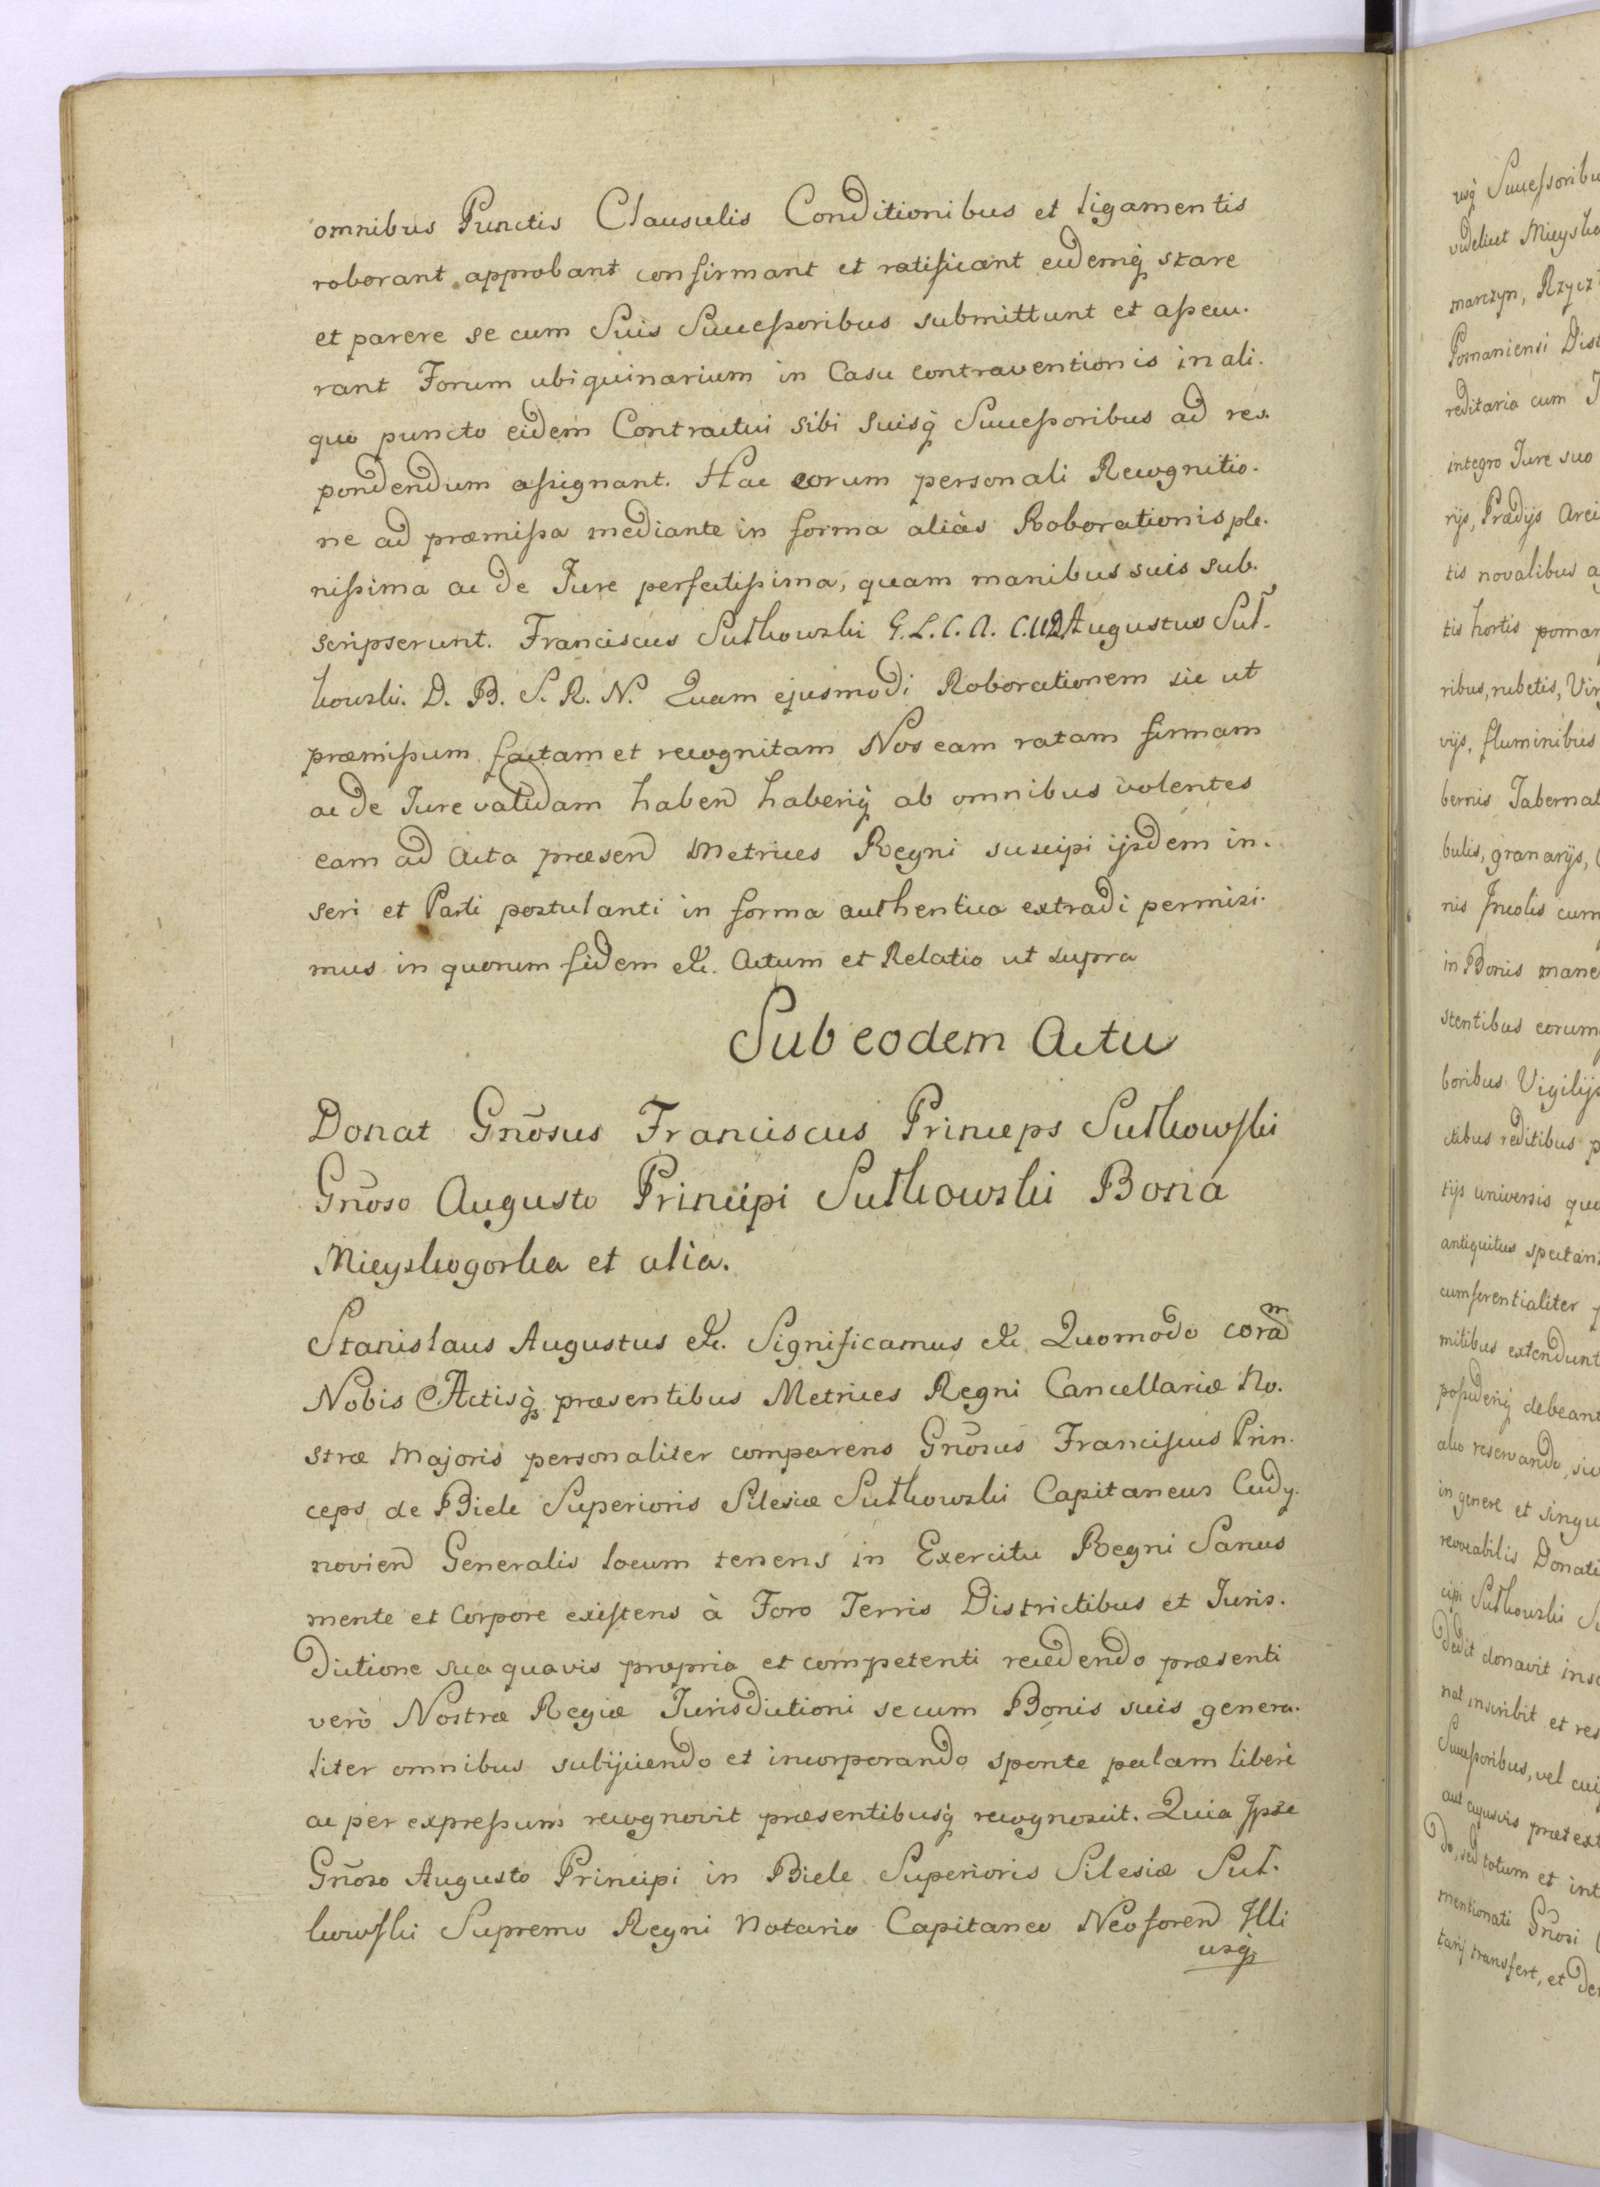 omnibus Punctis Clausulis Conditionibus et ligamentis
roborant approbant confirmant et ratificant eidemq̃ stare
et parere se cum Suis Successoribus submittunt et assecu-
rant Forum ubiquinarium in Casu contraventionis in ali-
quo puncto eidem Contractui sibi suisq̃ Successoribus ad res-
pondendum assignant. Hac eorum personali Recognitio-
ne ad præmissa mediante in forma aliàs Roborationis ple-
nissima ac de Jure perfectissima, quam manibus suis sub-
scripserunt. Franciscus Sułkowski G. L. C. A. Augustus Suł-
kowski. D. B. S. R. N. Quam ejusmodi Roborationem sic ut
præmissum factam et recognitam Nos eam ratam firmam
ac de Jure validam haben haberiq̃ ab omnibus volentes
eam ad Acta præsen Metrices Regni suscipi ijsdem in-
seri et Parti postulanti in forma authentica extradi permisi-
mus in quorum fidem etc. Actum et Relatio ut supra
Sub eodem Actu
Donat Gñosus Franciscus Princeps Sułkowski
Gñoso Augusto Principi Sułkowski Bona
Mieyskogorka et alia.
Stanislaus Augustus etc. Significamus etc. Quomodo coram
Nobis Actisq̃ præsentibus Metrices Regni Cancellariæ No-
stræ Majoris personaliter comparens Gñosus Franciscus Prin-
ceps de Biele Superioris Silesiæ Sułkowski Capitaneus Cudy-
novien Generalis locum tenens in Exercitu Regni Sanus
mente et Corpore existens à Foro Terris Districtibus et Juris-
dictione sua quavis propria et competenti recedendo præsenti
verò Nostræ Regiæ Jurisdictioni se cum Bonis suis genera-
liter omnibus subijciendo et incorporando sponte palam liberè
ac per expressum recognovit præsentibusq̃ recognoscit. Quia Ipse
Gñoso Augusto Principi in Biele Superioris Silesiæ Suł-
kowski Supremo Regni Notario Capitaneo Neoforen Illi
usq̃
usq̃ Successoribu
videlicet Mieysko
marczyn, Rzycz
Posnaniensi Dist
reditaria cum J
integro Jure suo
rijs, Prædijs Arei
tis novalibus a
tis hortis pomar
ribus, rubetis, Vir
vijs, fluminibus
bernis Tabernat
bulis, granarijs,
nis Incolis cum
in Bonis mane
stentibus eorum
boribus Vigilijs
ctibus reditibus p
tijs universis qu
antiquitus spectan
cumferentialiter
mitibus extendunt
possideriq̃ debeant
alio reservando, sic
in genere et singu
revocabilis Donati
cipi Sułkowski S
Dedit donavit insc
nat inscribit et res
Successoribus, vel cui
aut cujusvis prætext
do, sed totum et int
mentionati Gñosi
tarij transfert, et De